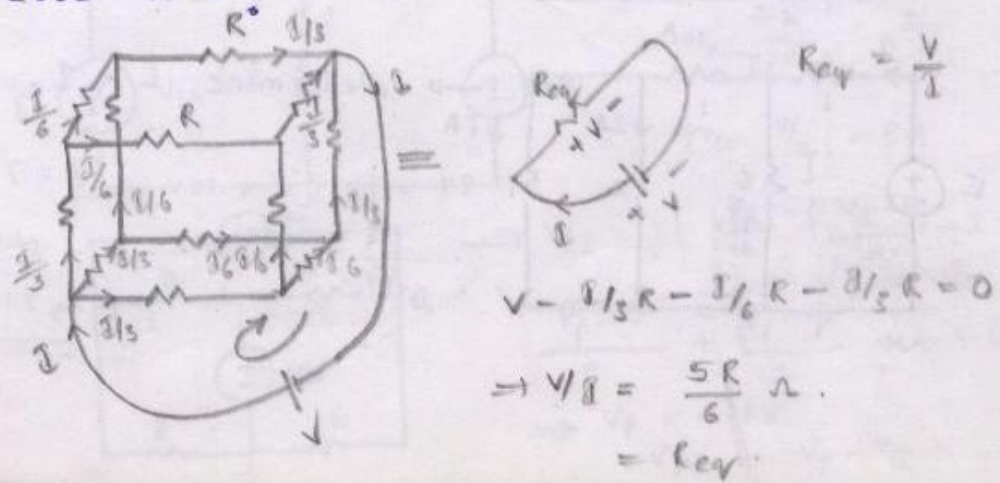 R I/3
I
I/6
R
I/3
I/6
I/6
I/3
I/3
I/3
I/6 I/6 I/6
I/3
I
V
=
Req
+ V -
+ V -
I
Req = V/I
V - I/3 R - I/6 R - I/3 R = 0
⇒ V/I = 5R/6 Ω.
= Req.